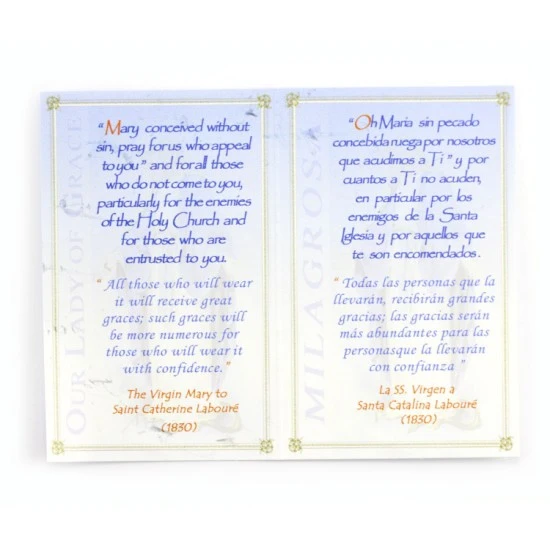 OUR LADY OF GRACE
"Mary conceived without
sin, pray for us who appeal
to you" and for all those
who do not come to you,
particularly for the enemies
of the Holy Church and
for those who are
entrusted to you.
" All those who will wear
it will receive great
graces; such graces will
be more numerous for
those who will wear it
with confidence."
The Virgin Mary to
Saint Catherine Labouré
(1830)
MILAGROSA
"Oh Maria sin pecado
concebida ruega por nosotros
que acudimos a Ti " y por
cuantos a Ti no acuden,
en particular por los
enemigos de la Santa
Iglesia y por aquellos que
te son encomendados.
" Todas las personas que la
llevarán, recibirán grandes
gracias; las gracias serán
más abundantes para las
personasque la llevarán
con confianza "
La SS. Virgen a
Santa Catalina Labouré
(1830)